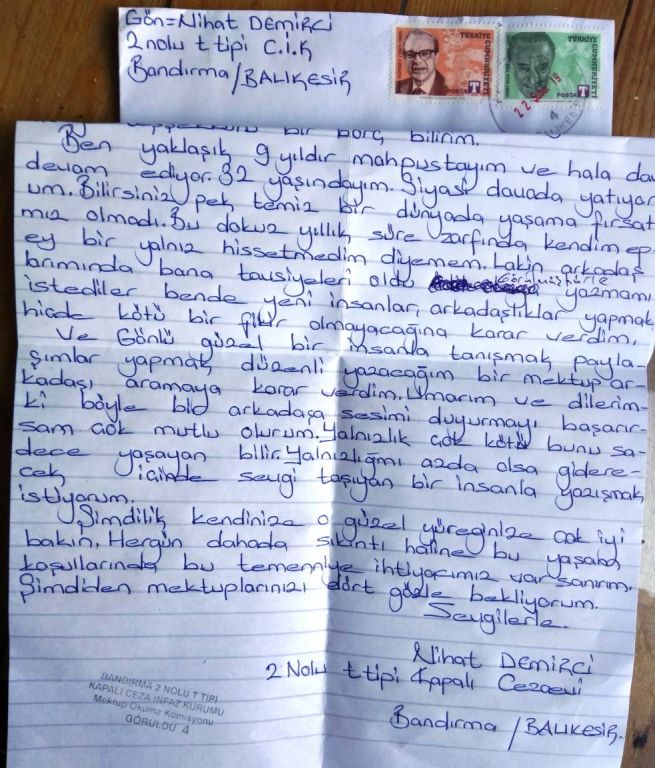 Gön=Nihat DEMİRCİ
2 nolu t tipi C.İ.K
Bandırma/BALIKESİR
TÜRKİYE CUMHURİYETİ
POSTA T
TÜRKİYE CUMHURİYETİ
POSTA T
22 19
4
bir borç bilirim.
Ben yaklaşık 9 yıldır mahpustayım ve hala dav
devam ediyor. 32 yaşındayım. Siyasi davada yatıyor
um. Bilirsiniz pek temiz bir dünyada yaşama fırsat
mız olmadı. Bu dokuz yıllık süre zarfında kendim ep
ey bir yalnız hissetmedim diyemem. Lakin arkadaş
larımında bana tavsiyeleri oldu Görülmüştür'le yazmamı
istediler bende yeni insanlar, arkadaştıklar yapmak
hiçde kötü bir fikir olmayacağına karar verdim.
Ve Gönlü güzel bir insanla tanışmak, payla-
şımlar yapmak, düzenli yazacağım bir mektup ar-
kadaşı aramaya karar verdim. Umarım ve dilerim-
ki böyle bir arkadaşa sesimi duyurmayı başarır-
sam çok mutlu olurum. Yalnızlık çok kötü bunu sa-
dece yaşayan bilir. Yalnızlığımı azda olsa gidere-
cek, içinde sevgi taşıyan bir insanla yazışmak
istiyorum.
Şimdilik kendinize o güzel yüreğinize çok iyi
bakın. Hergün dahada sıkıntı haline bu yaşam
koşullarında bu temenniye ihtiyacımız var sanırım.
Şimdiden mektuplarınızı dört gözle bekliyorum.
Sevgilerle.
Nihat DEMİRCİ
2 Nolu t tipi Kapalı Cezaevi
Bandırma/BALIKESİR.
BANDIRMA 2 NOLU T TİPİ
KAPALI CEZA İNFAZ KURUMU
Mektup Okuma Komisyonu
GÖRÜLDÜ 4